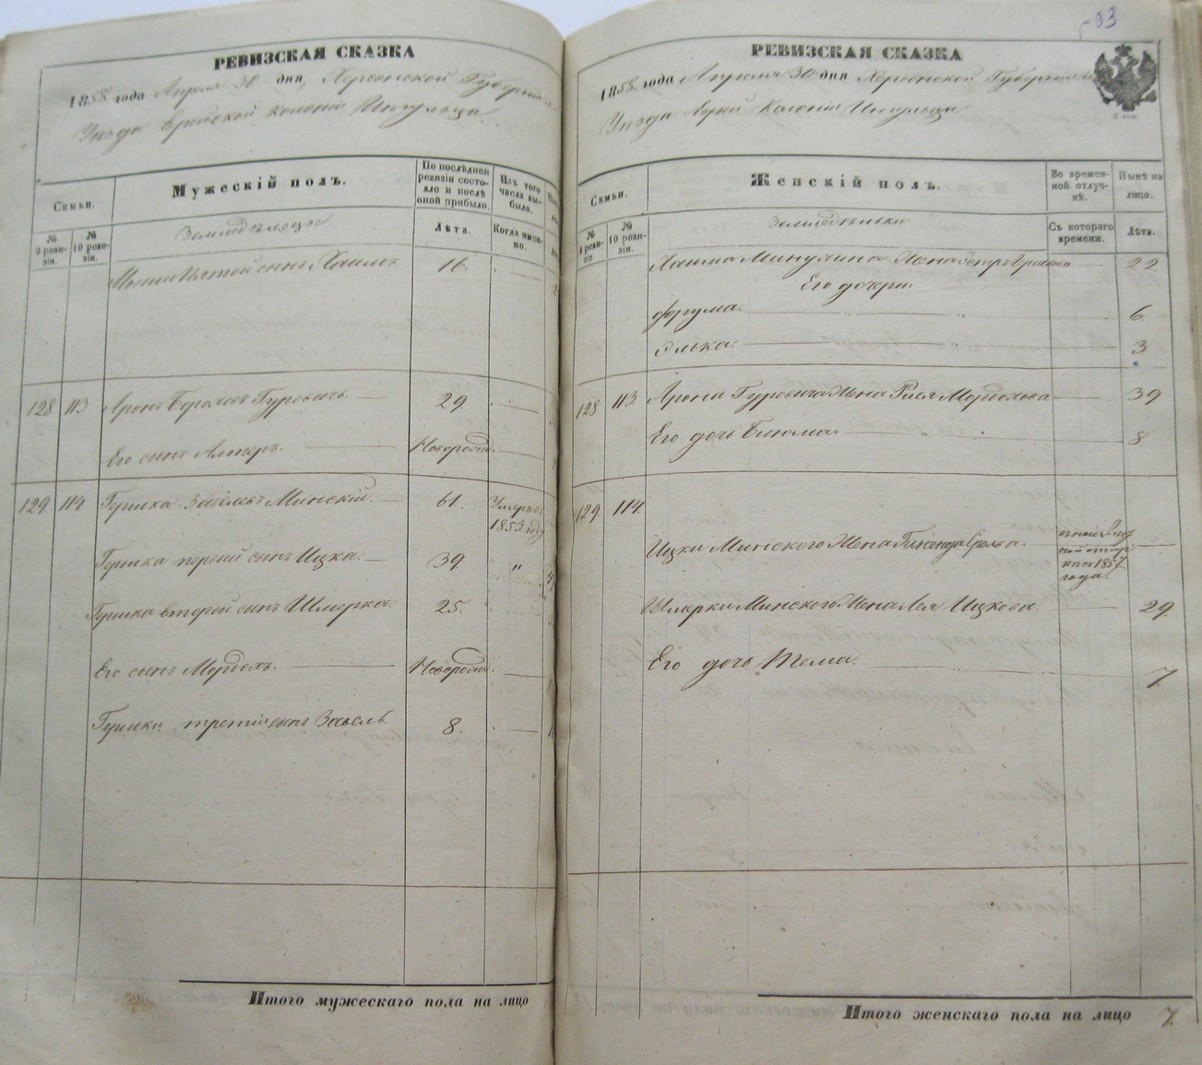 РЕВИЗСКАЯ СКАЗКА
1858 года Апреля 30 дня, Херсонской Губернии
Уезда Еврейской колонии Ингульца
Семьи.
Мужескій полъ.
По послѣдней ревизіи состояло и послѣ оной прибыло.
Изъ того числа выбыло.
№ 9 ревизіи.
№ 10 ревизіи.
Земледѣльцы
Лѣта.
Когда именно.
пятой сынъ Хаимъ 16.
128 113 Аронъ Гуровичъ. 29
Его сынъ Алтеръ. Новорожд.
129 114 Гершка Минскій. 61. Умеръ въ 1853 году
Гершка первый сынъ Ицка. 39. "
Гершка второй сынъ Шмерка. 25.
Его сынъ Мордохъ. Новорожд.
Гершки третій сынъ Завель 8.
Итого мужескаго пола на лицо
РЕВИЗСКАЯ СКАЗКА
1858 года Апреля 30 дня Херсонской Губерніи
Уезда Колоніи Ингульца
Семьи.
Женскій полъ.
Во временной отлучкѣ.
Нынѣ на лицо.
№ 9 ревизіи.
№ 10 ревизіи.
Земледѣльки
Съ котораго времени.
Лѣта.
Хаима жена 22
Его дочери
Фрума. " 6.
Элька. " 3
128 113 Арона Гуровича жена Рися Мордохова 39
Его дочь Блюма. " 8
129 114.
Ицки Минского жена 1857 года.
Шмерки Минского жена Лея Ицкова. 29.
Его дочь Тема. 7.
Итого женскаго пола на лицо 7.